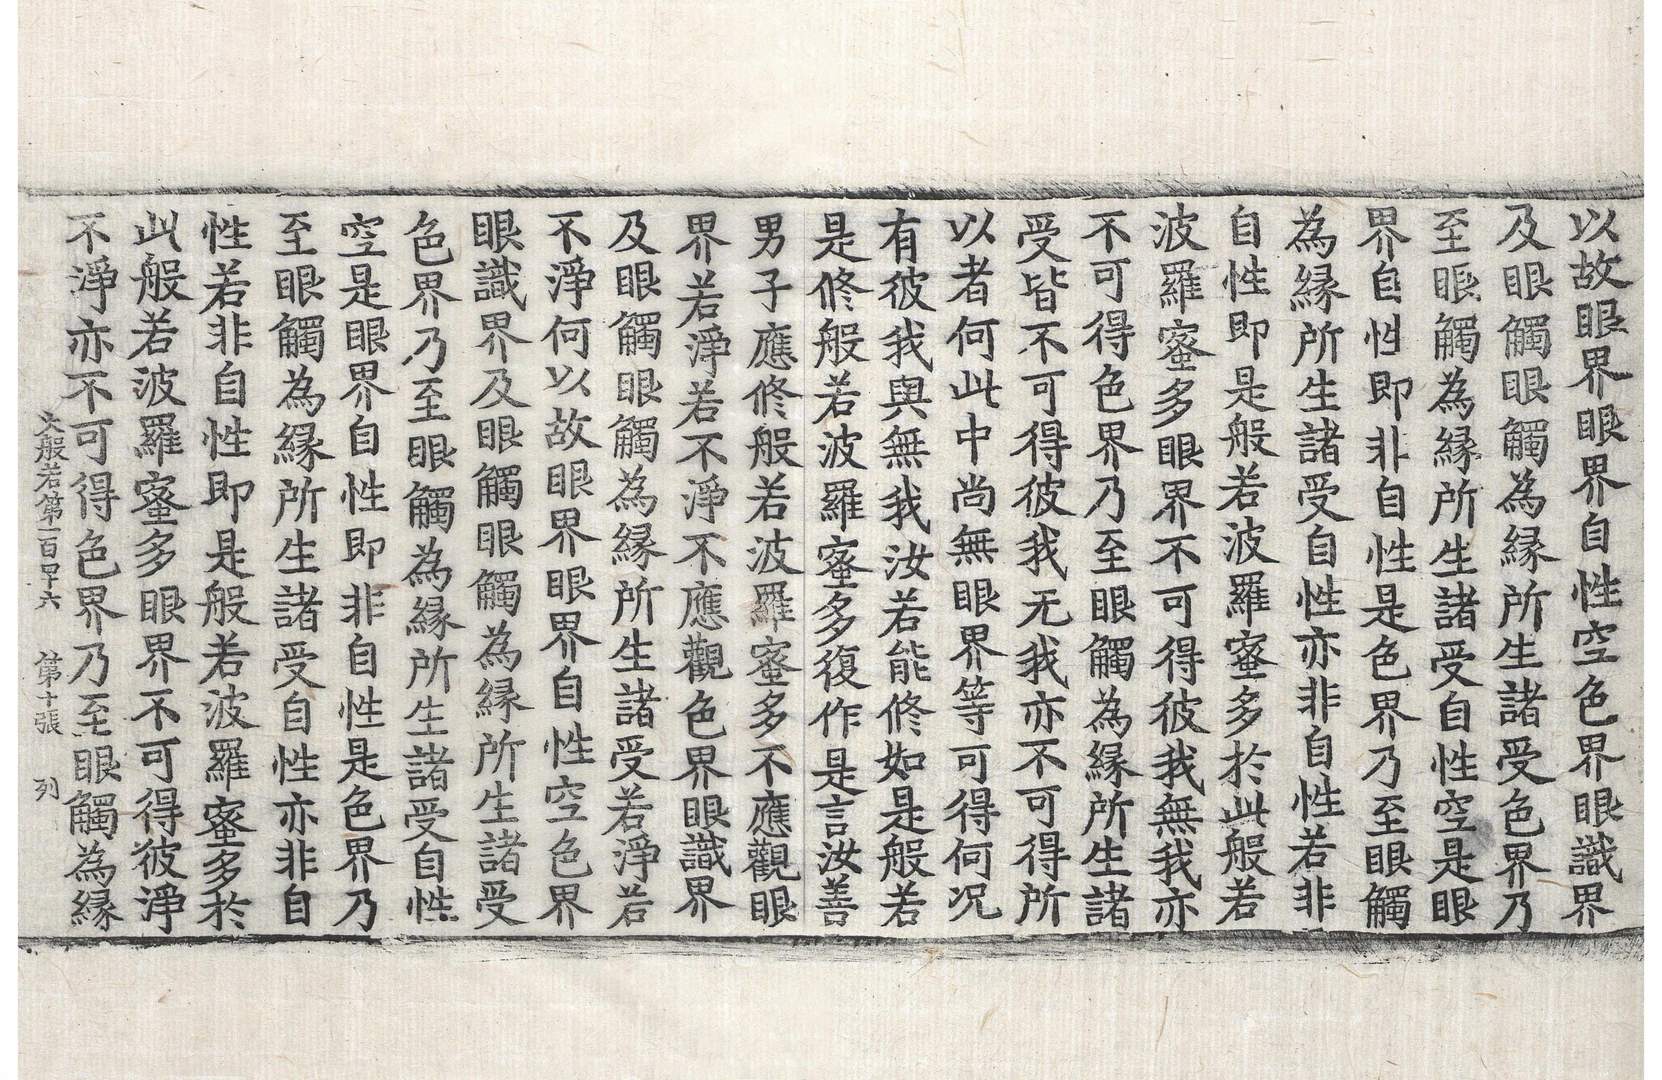 以故眼界眼界自性空色界眼識界
及眼觸眼觸為縁所生諸受色界乃
至眼觸為縁所生諸受自性空是眼
界自性即非自性是色界乃至眼觸
為縁所生諸受自性亦非自性若非
自性即是般若波羅蜜多於此般若
波羅蜜多眼界不可得彼我無我亦
不可得色界乃至眼觸為縁所生諸
受皆不可得彼我无我亦不可得所
以者何此中尚無眼界等可得何况
有彼我與無我汝若能修如是般若
是修般若波羅蜜多復作是言汝善
男子應修般若波羅蜜多不應觀眼
界若淨若不淨不應觀色界眼識界
及眼觸眼觸為縁所生諸受若淨若
不淨何以故眼界眼界自性空色界
眼識界及眼觸眼觸為縁所生諸受
色界乃至眼觸為縁所生諸受自性
空是眼界自性即非自性是色界乃
至眼觸為縁所生諸受自性亦非自
性若非自性即是般若波羅蜜多於
此般若波羅蜜多眼界不可得彼淨
不淨亦不可得色界乃至眼觸為縁
大般若第一百四十六 第十張 列